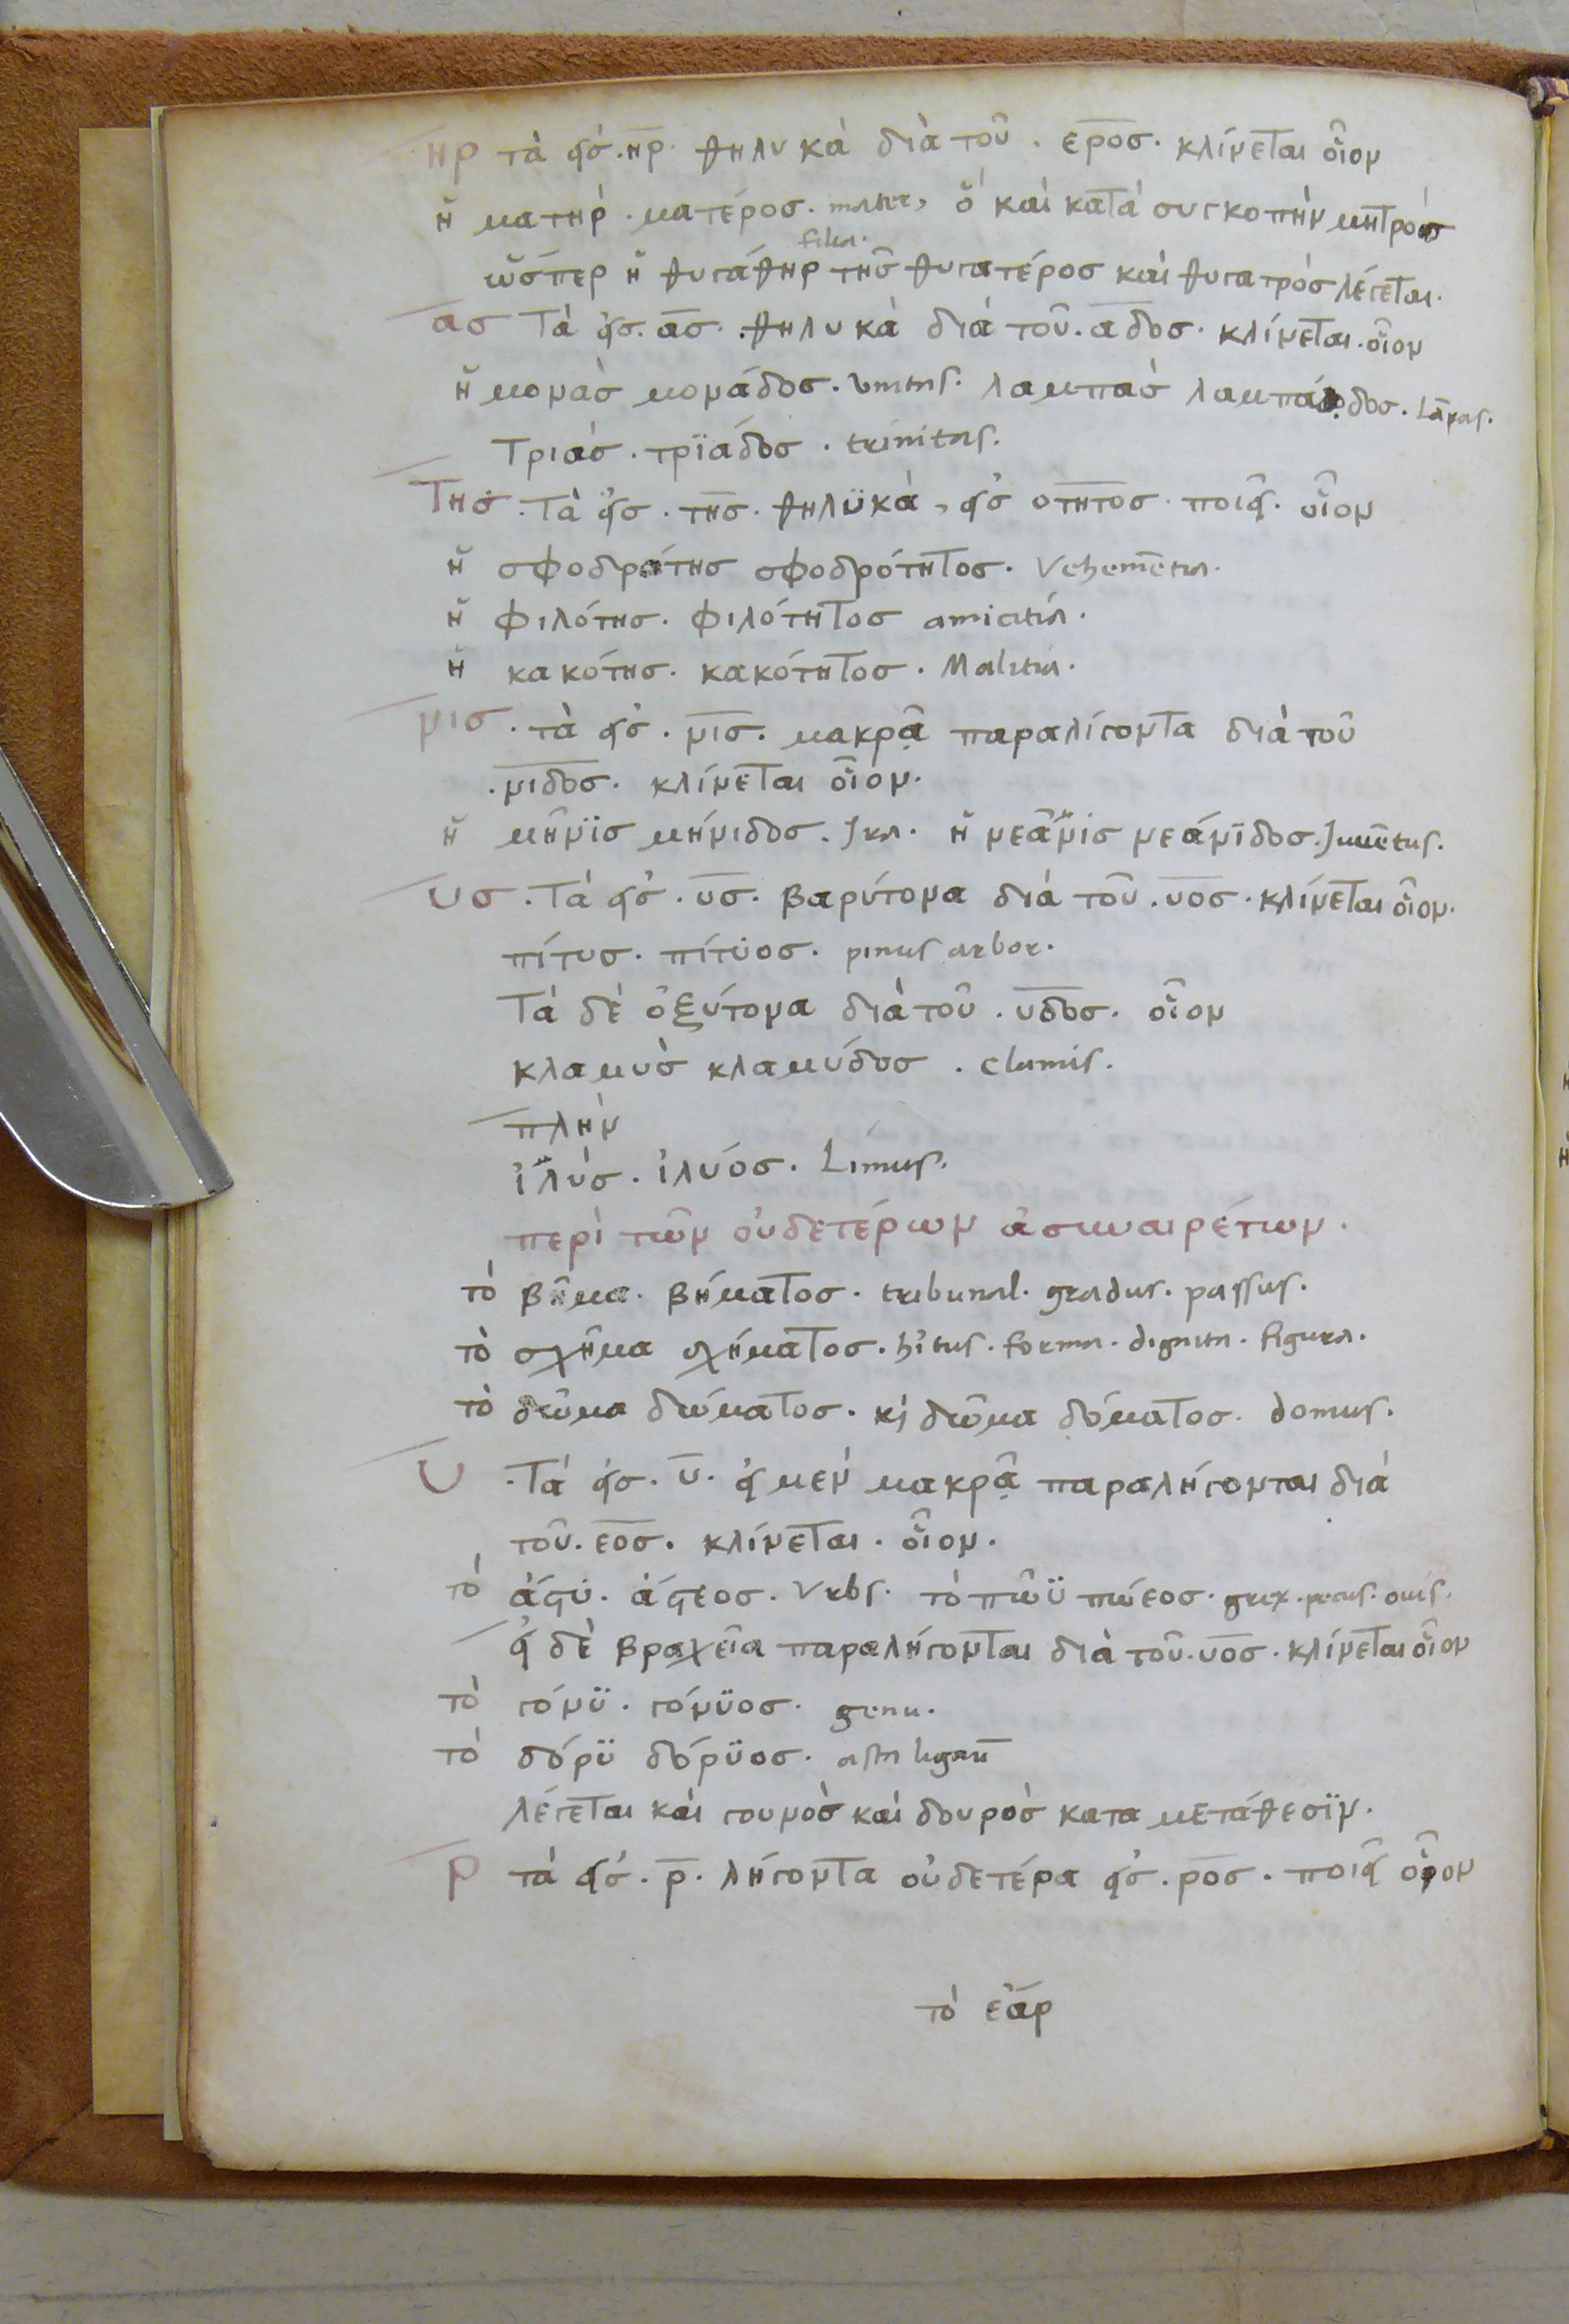 ηρ τὰ εἰς . ηρ . θηλυκὰ διὰ τοῦ . ερος . κλίνεται οἷον
ἡ ματηρ . ματέρος . mater, ὅ καὶ κατὰ συγκοπὴν μητρός
filia.
ὥσπερ ἡ θυγάθηρ τῆς θυγατέρος καὶ θυγατρὸς λέγεται.
ας Τὰ εἰς . ας . θηλυκὰ διὰ τοῦ . αδος . κλίνεται . οἷον
ἡ μονὰς μονάδος . unitas. λαμπὰς λαμπάδος . Lāpas.
Τριάς . τρϊάδος . trinitas.
Της . Τὰ εἰς . της . θηλϋκά, εἰς οτητος . ποιεῖ . οἷον
ἡ σφοδρότης σφοδρότητος . Vehemētia.
ἡ φιλότης . φιλότητος amicitia.
ἡ κακότης . κακότητος . Malitia.
νις . τὰ εἰς . νις . μακρᾷ παραλίγοντα διὰ τοῦ
. νιδος . κλίνεται οἷον .
ἡ μῆνϊς μήνιδος . Ira . ἡ νεᾶνίς νεάνιδος . Iuuētus.
υς . Τὰ εἰς . υς . βαρύτονα διὰ τοῦ . υος . κλίνεται οἷον.
πίτυς . πίτϋος . pinus arbor.
Τὰ δὲ ὀξύτονα διὰ τοῦ . υδος . οἷον
κλαμυὸς κλαμύδος . clamis.
πλὴν
ἰλὺς . ἰλύος . Limus.
περὶ τῶν οὐδετέρων ἀσυναιρέτων .
τὸ βῆμα . βήματος . tribunal . gradus . passus .
τὸ σχῆμα σχήματος . hītus . forma . dignita . figura .
τὸ δῶμα δώματος . κὶ δῶμα δόματος . domus .
υ . Τὰ εἰς . υ . εἰ μὲν μακρᾷ παραλήγονται διὰ
τοῦ . εος . κλίνεται . οἷον .
τὸ ἄστυ . ἄστεος . Vrbs . τὸ πῶϋ πώεος . grex . pecus . ouis .
εἰ δὲ βραχεῖα παραλήγονται διὰ τοῦ . υος . κλίνεται οἷον
τὸ γόνϋ . γόνϋος . genu .
τὸ δόρϋ δόρϋος . asta lignū
λέγεται καὶ γουνὸς καὶ δουρὸς κατα μετάθεσϊν .
ρ τὰ εἰς . ρ . λήγοντα οὐδετέρα εἰς . ρος . ποιεῖ οἷον
τὸ εἆρ